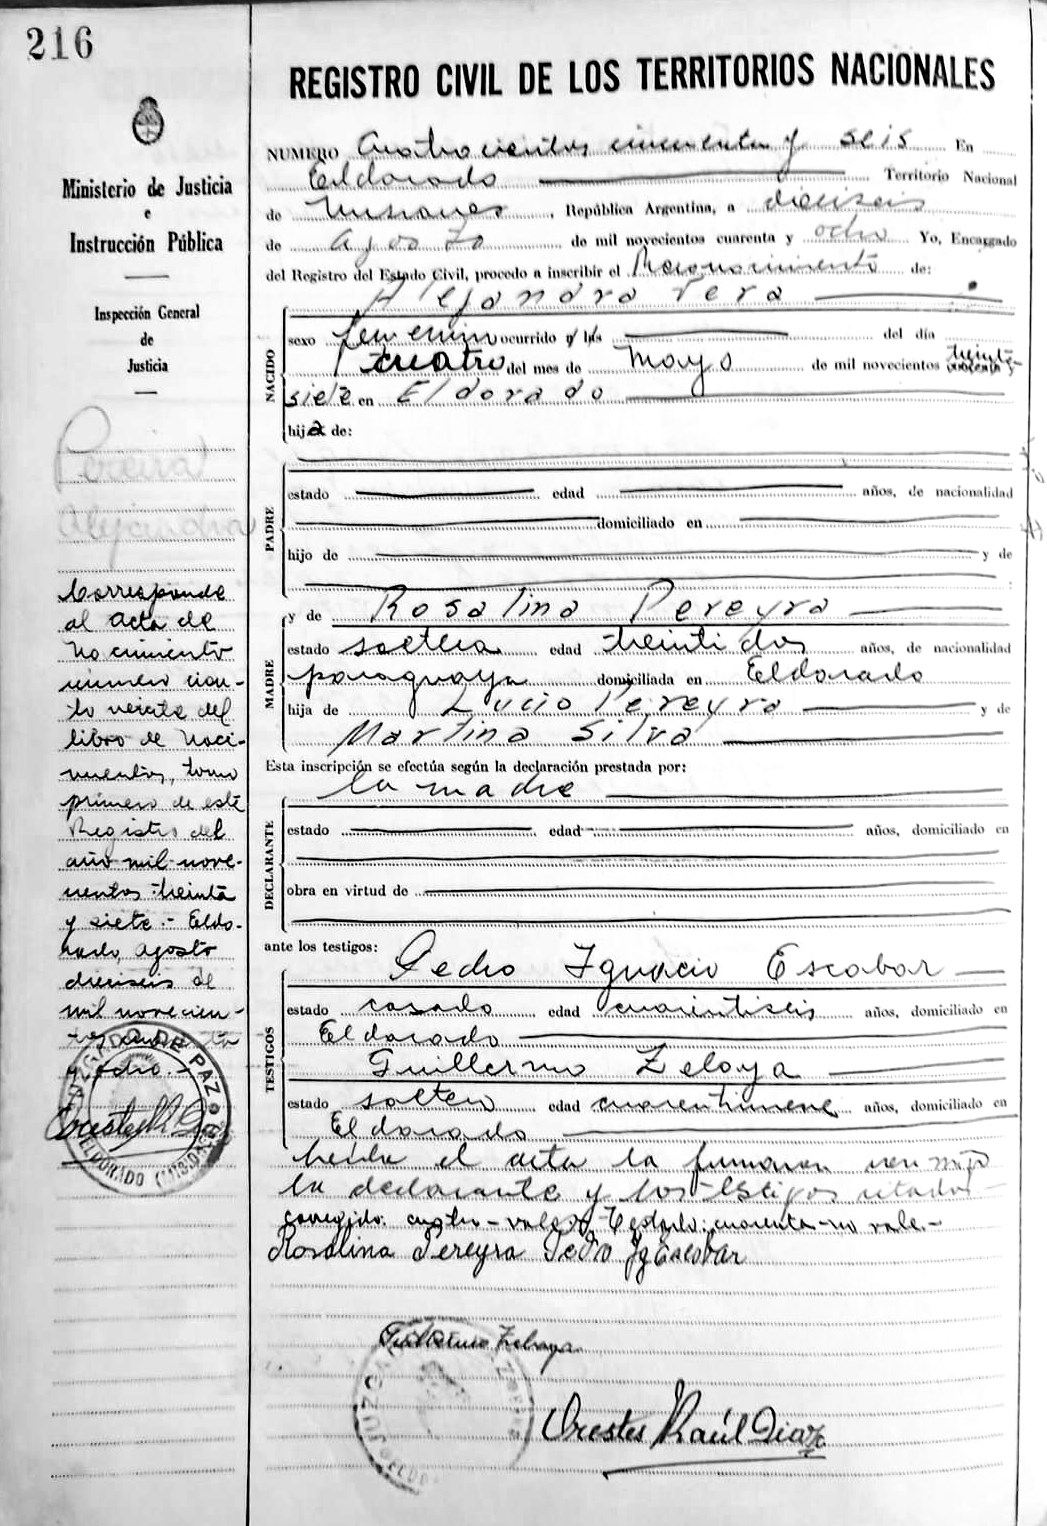 216
REGISTRO CIVIL DE LOS TERRITORIOS NACIONALES
Ministerio de Justicia
e
Instrucción Pública
Inspección General
de
Justicia
Pereira
Alejandra
Corresponde
al acta de
Nacimiento
número cien-
to veinte del
libro de Naci-
mientos, tomo
primero de este
Registro del
año mil nove-
cientos treinta
y siete.- Eldo-
rado, agosto
dieciseis de
mil novecien-
tos cuarenta
y ocho.-
JUZGADO DE PAZ
ELDORADO (MISIONES)
NUMERO Cuatrocientos cincuenta y seis En
Eldorado Territorio Nacional
de Misiones, República Argentina, a dieciseis
de Agosto de mil novecientos cuarenta y ocho Yo, Encargado
del Registro del Estado Civil, procedo a inscribir el Reconocimiento de:
Alejandra Vera
NACIDO
sexo femenino ocurrido a las del día
cuatro del mes de mayo de mil novecientos treinta cuarenta y
siete en Eldorado
hija de:
PADRE
estado edad años, de nacionalidad
domiciliado en
hijo de y de
MADRE
y de Rosalina Pereyra
estado soltera edad treinti dos años, de nacionalidad
paraguaya domiciliada en Eldorado
hija de Lucio Pereyra y de
Martina Silva
Esta inscripción se efectúa según la declaración prestada por:
la madre
DECLARANTE
estado edad años, domiciliado en
obra en virtud de
ante los testigos:
TESTIGOS
Pedro Ignacio Escobar
estado casado edad cuarentiseis años, domiciliado en
Eldorado
Guillermo Zelaya
estado soltero edad cuarentinueve años, domiciliado en
Eldorado
leída el acta la firmaron conmigo
la declarante y los testigos citados
corregido: cuatro - vale - Testado: cuarenta - no vale.-
Rosalina Pereyra Pedro Ig Escobar
Guillermo Zelaya
Orestes Raúl Diaz